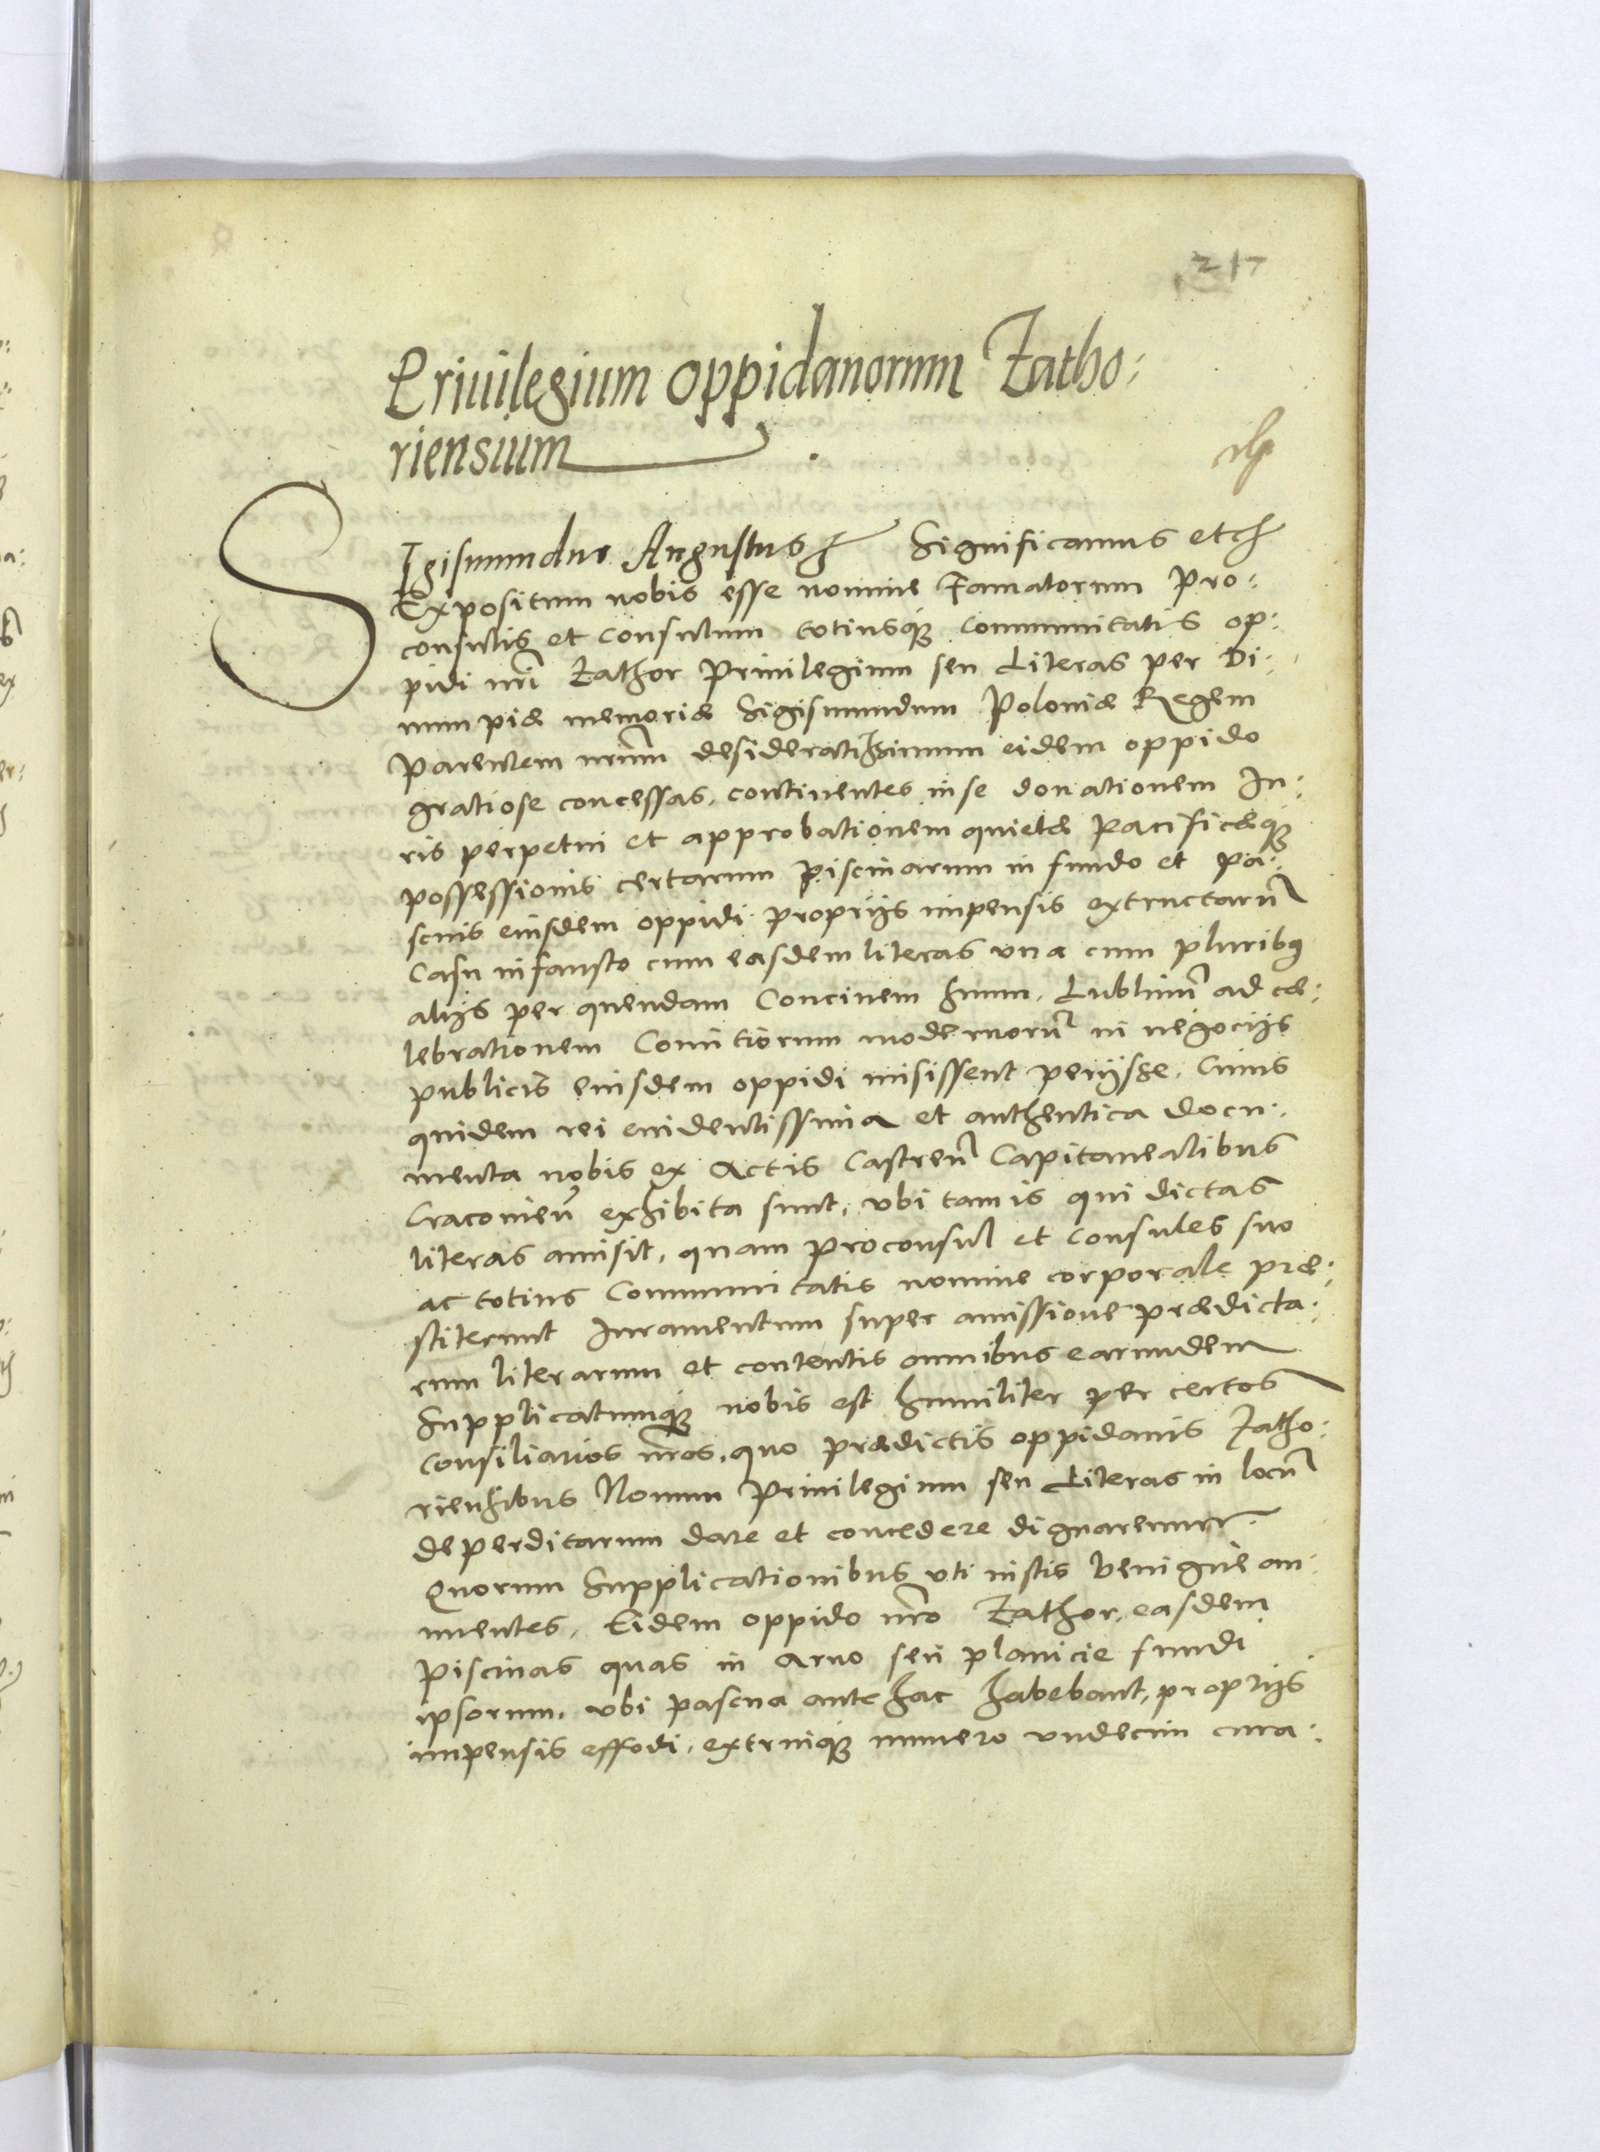 217
Priuilegium oppidanorum Zatho:
riensium
SIgismundus Augustus etc Significamus etc
Expositum nobis esse nomine Famatorum Pro:
consulis et Consulum totiusq3 Communitatis op:
pidi nri Zathor Priuilegium seu Literas per Di:
uum piæ memoriæ Sigismundum Poloniæ Regem
Parentem nrum desideratissimum eidem oppido
gratiose concessas, continentes in se donationem Iu:
ris perpetui et approbationem quietæ pacificæq3
possessionis certarum piscinarum in fundo et pa:
scuis eiusdem oppidi proprijs impensis extructarū
Casu infausto cum easdem literas vna cum pluribq
alijs per quendam Conciuem suum, Lublinū ad cæ:
lebrationem Comitiorum modernorū in negocijs
publicis eiusdem oppidi misissent perijsse, Cuius
quidem rei euidentissima et authentica docu:
menta nobis ex Actis Castren̄ Capitanealibus
Cracouien̄ exhibita sunt, vbi tam is qui dictas
literas amisit, quam proconsul et Consules suo
ac totius Communitatis nomine corporale præ:
stiterunt Iuramentum super amissione prædicta:
rum literarum et contentis omnibus earundem
Supplicatumq3 nobis est humiliter per certos
consiliarios nros, quo prædictis oppidanis Zatho:
riensibus Nouum Priuilegium seu Literas in locū
deperditarum dare et concedere dignaremur.
Quorum supplicationibus vti iustis benigne an:
nuentes, Eidem oppido nro Zathor, easdem
piscinas quas in Aruo seu planicie fundi
ipsorum, vbi pascua antehac habebant, proprijs
impensis effodi, extruiq3 numero vndecim cura: